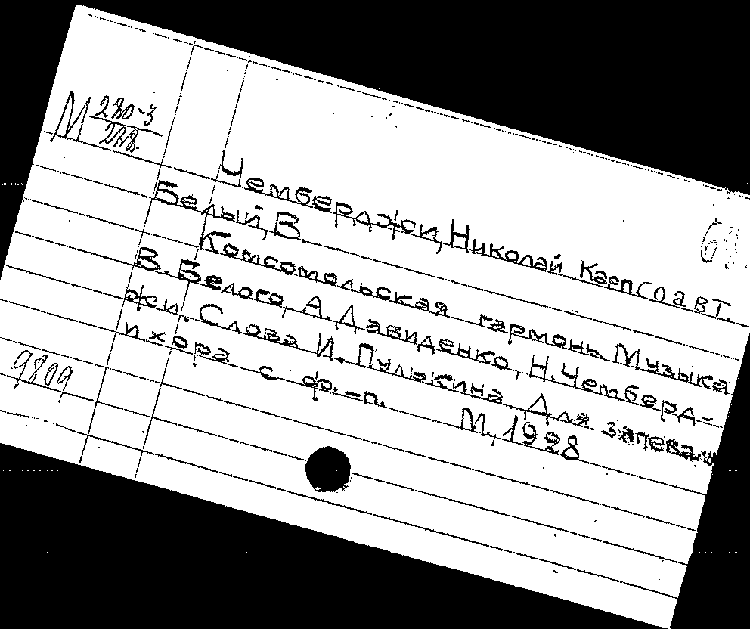 М 280-3
Чемберджи, Николай Карп соавт.
Белый, В.
Комсомольская гармонь. Музыка
В. Белого, А. Давиденко, Н. Чемберд-
жи. Слова И. Пулькина. Для запевалы
и хора с ф.-п. М., 1928
9809